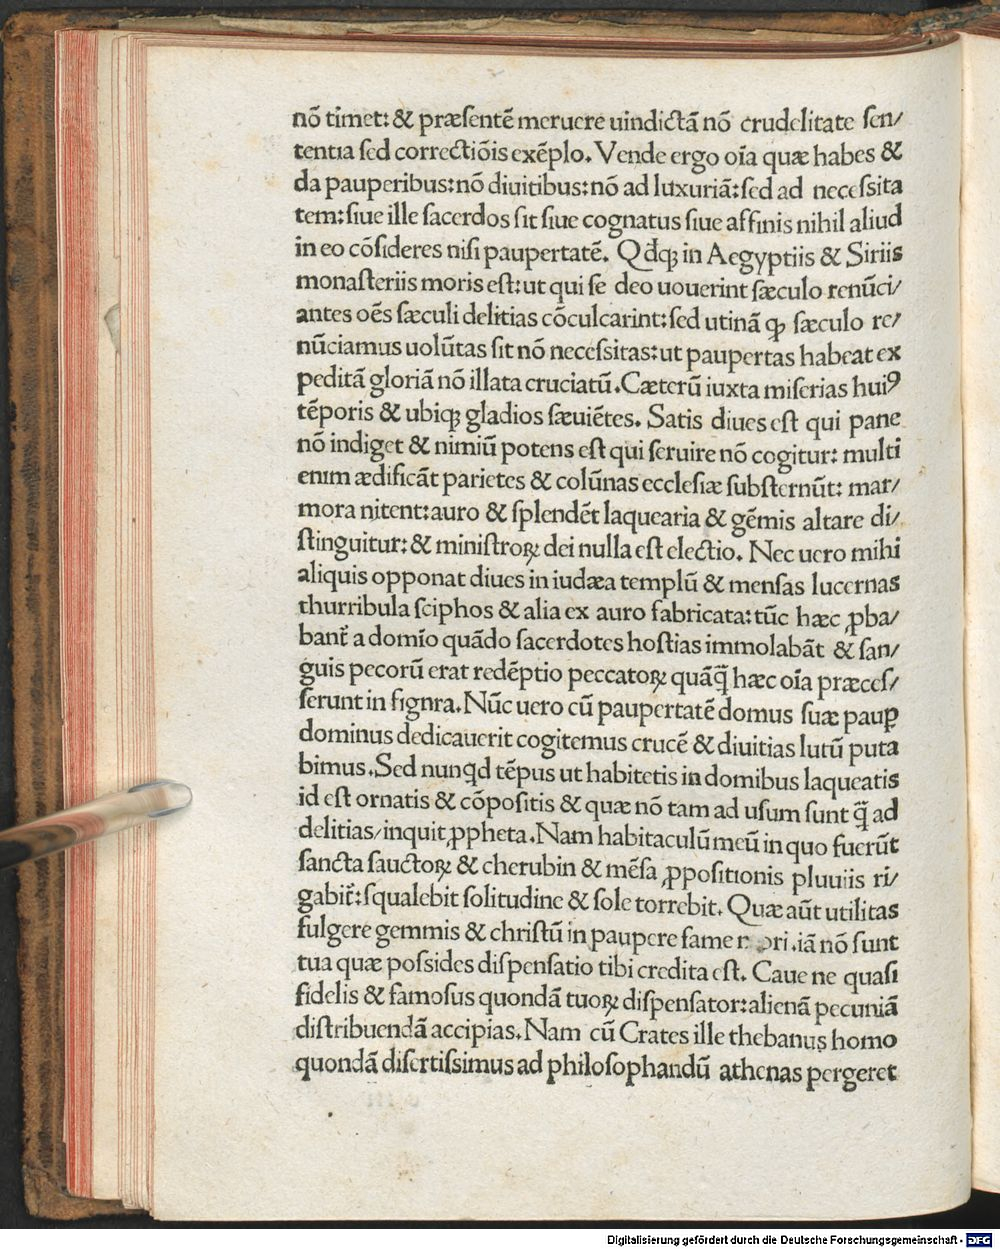 nō timet: & præsentē meruere uindictā nō crudelitate sen/
tentia sed correctiōis exēplo. Vende ergo oīa quæ habes &
da pauperibus: nō diuitibus: nō ad luxuriā: sed ad necessita
tem: siue ille sacerdos sit siue cognatus siue affinis nihil aliud
in eo cōsideres nisi paupertatē. Qđqꝫ in Aegyptiis & Siriis
monasteriis moris est: ut qui se deo uouerint sæculo renūci/
antes oēs sæculi delitias cōculcarint: sed utinā ꝙ sæculo re/
nūciamus uolūtas sit nō necessitas: ut paupertas habeat ex
peditā gloriā nō illata cruciatū. Cæterū iuxta miserias huiꝰ
tēporis & ubiqꝫ gladios sæuiētes. Satis diues est qui pane
nō indiget & nimiū potens est qui seruire nō cogitur: multi
enim ædificāt parietes & colūnas ecclesiæ substernūt: mar/
mora nitent: auro & splendēt laquearia & gēmis altare di/
stinguitur: & ministroꝝ dei nulla est electio. Nec uero mihi
aliquis opponat diues in iudæa templū & mensas lucernas
thurribula sciphos & alia ex auro fabricata: tūc hæc ꝓba/
bant̄ a domīo quādo sacerdotes hostias immolabāt & san/
guis pecorū erat redēptio peccatoꝝ quāq̄ hæc oīa præces/
serunt in fignra. Nūc uero cū paupertatē domus suæ pauꝑ
dominus dedicauerit cogitemus crucē & diuitias lutū puta
bimus. Sed nunqd tēpus ut habitetis in domibus laqueatis
id est ornatis & cōpositis & quæ nō tam ad usum sunt q̄ ad
delitias/inquit ꝓpheta. Nam habitaculū meū in quo fuerūt
sancta sauctoꝝ & cherubin & mēsa ꝓpositionis pluuiis ri/
gabit̄: squalebit solitudine & sole torrebit. Quæ aūt utilitas
fulgere gemmis & christū in paupere fame iā nō sunt
tua quæ possides dispensatio tibi credita est. Caue ne quasi
fidelis & famosus quondā tuoꝝ dispensator: alienā pecuniā
distribuendā accipias. Nam cū Crates ille thebanus homo
quondā disertissimus ad philosophandū athenas pergeret
Digitalisierung gefördert durch die Deutsche Forschungsgemeinschaft - DFG